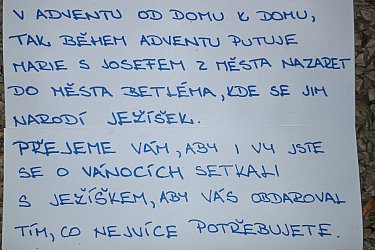 V ADVENTU OD DOMU K DOMU,
TAK BĚHEM ADVENTU PUTUJE
MARIE S JOSEFEM Z MĚSTA NAZARET
DO MĚSTA BETLÉMA, KDE SE JIM
NARODÍ JEŽÍŠEK.
PŘEJEME VÁM, ABY I VY JSTE
SE O VÁNOCÍCH SETKALI
S JEŽÍŠKEM, ABY VÁS OBDAROVAL
TÍM, CO NEJVÍCE POTŘEBUJETE.